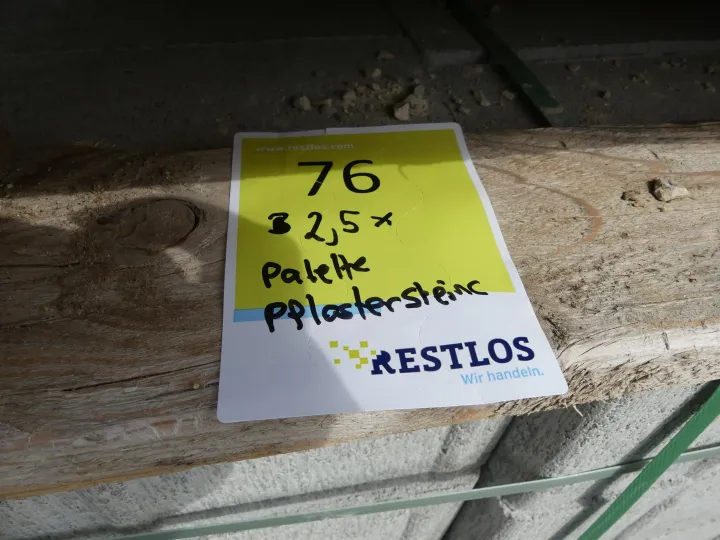 www.restlos.com
76
3 2,5 x
Palette
Pflastersteine
RESTLOS
Wir handeln.